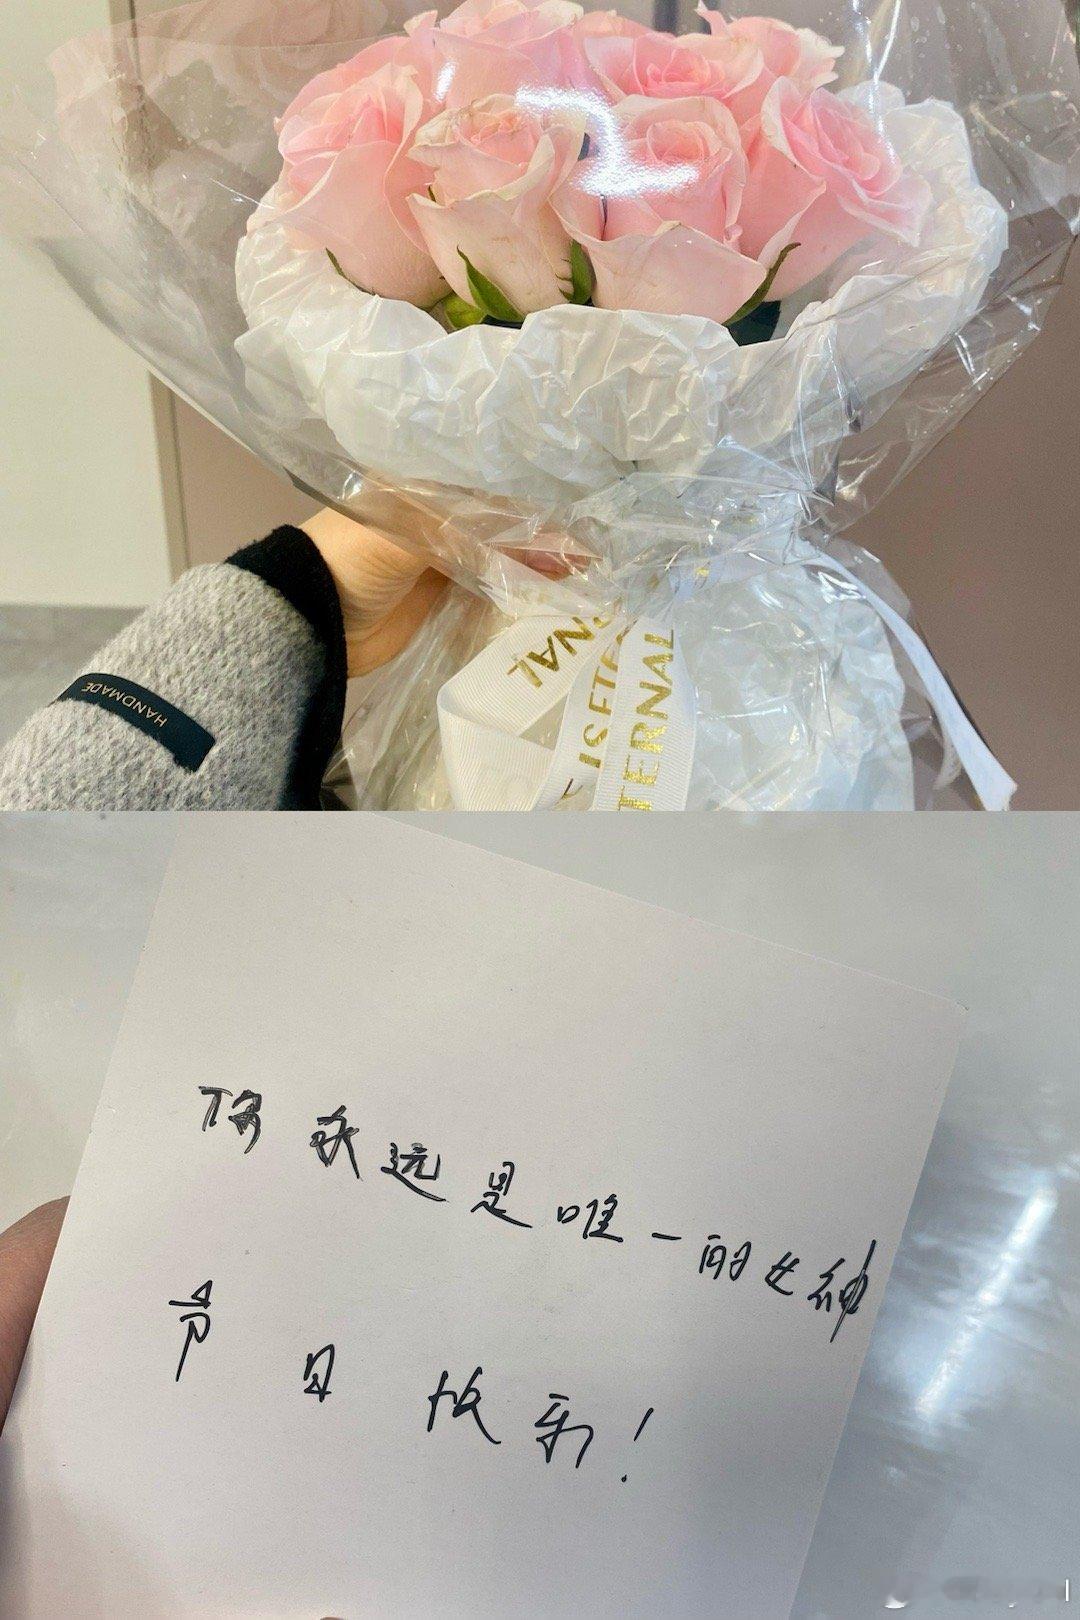 HANDMADE
NAL
IS ETE
TERNAL
你永远是唯一的女神
节日快乐!